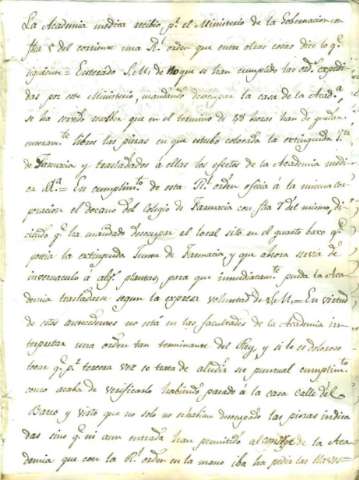 La Academia medica recibio p.r el Ministerio de la Gobernacion con
fha 5 del corriente una R.l orden que entre otras cosas dice lo q.e
siguiente = Enterado S.M. de no que se han cumplido las ord.s expedi
das por este Ministerio, mandando desocupar la casa de la Acad.a,
se ha servido resolver que en el termino de 48 horas han de quedar
libres las piezas en que estubo colocada la extinguida
de Farmacia y trasladados a ellas los efectos de la Academia medi
ca = En cumplim.to de esta R.l orden oficia á la misma cor
poracion el decano del Colegio de Farmacia con fha 7 del mismo, di
ciendo q.e ha mandado desocupar el local sito en el quarto baxo q.e
la extinguida Junta de Farmacia y que ahora servia de
invernaculo á alg.s plantas, para que inmediatam.te pueda la Aca
demia trasladarse segun la expresa voluntad de S.M. = En virtud
de estos antecedentes no está en las facultades de la Academia in
terpretar una orden tan terminante del Rey, y si le es doloroso
q.e p.r tercera vez se trate de eludir su puntual cumplim.to
como acaba de verificarlo habiendo pasado á la casa calle del
Barco y visto que no solo no se habian desocupado las piezas indica
das sino q.e ni aun entrada han permitido al de la Aca
demia que con la R.l orden en la mano iba ha pedir las llaves =